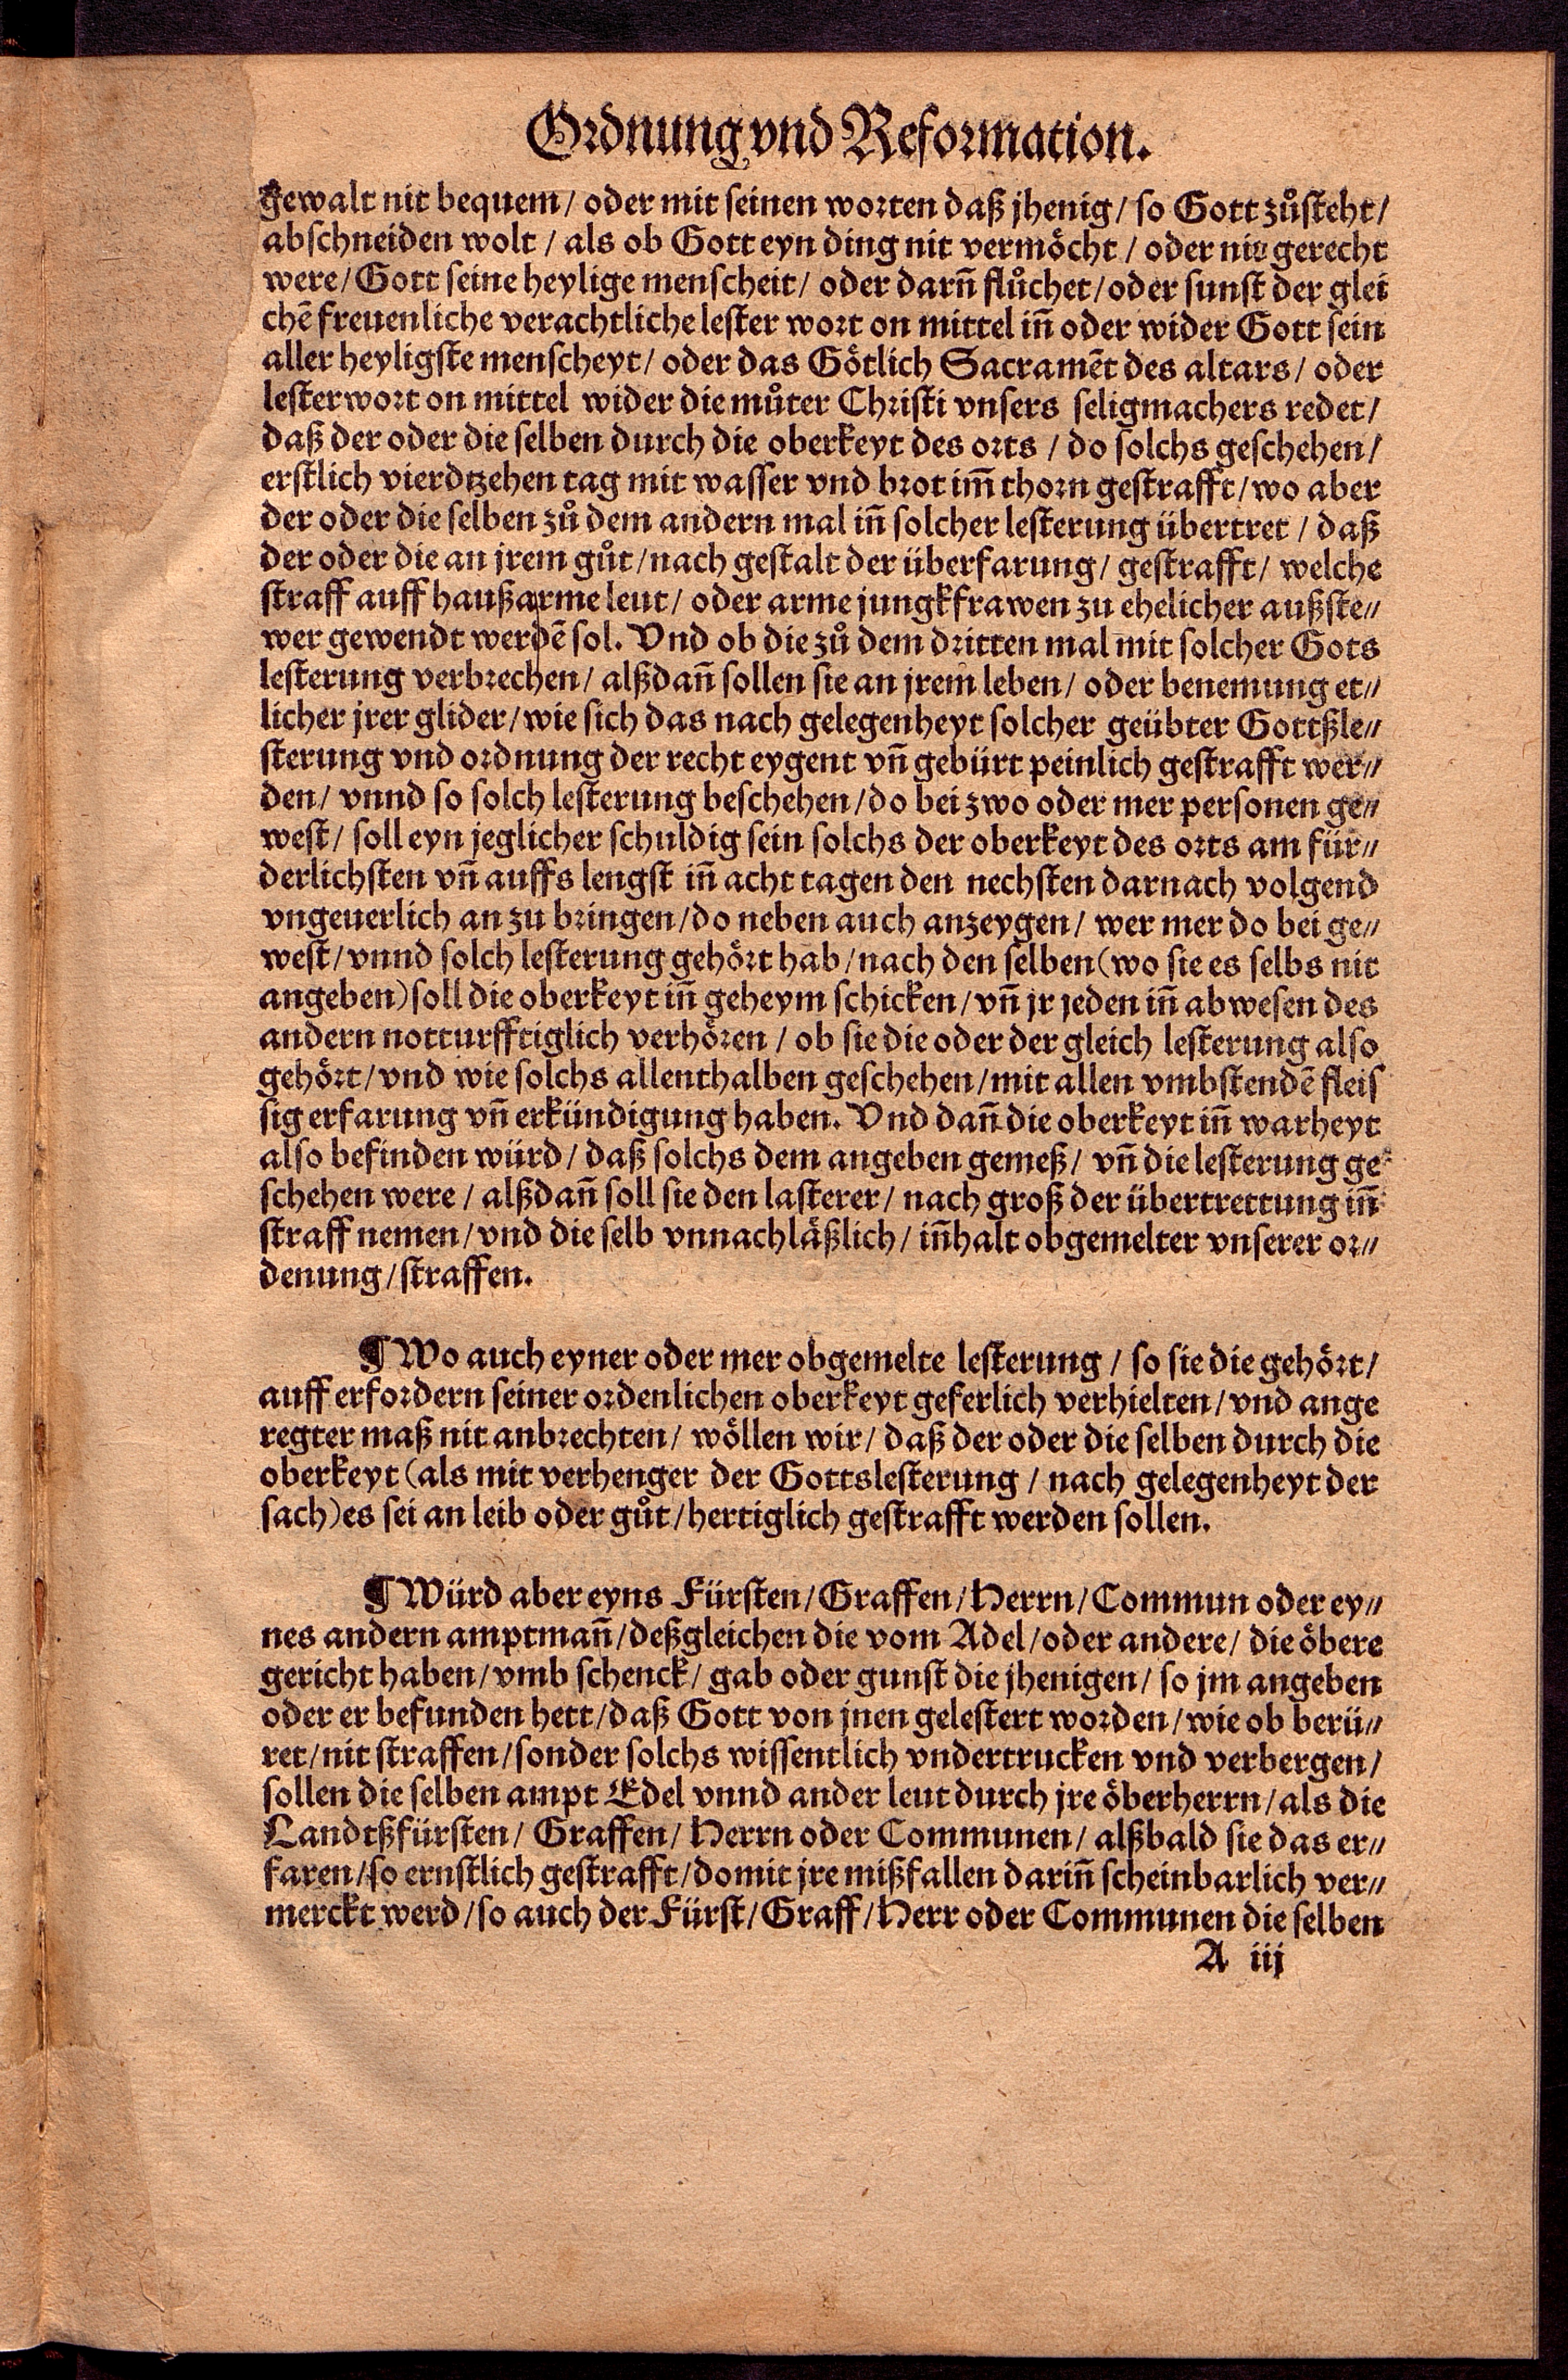 Ordnung vnd Reformation.
gewalt nit bequem / oder mit seinen worten daß jhenig / so Gott zůsteht /
abschneiden wolt / als ob Gott eyn ding nit vermöcht / oder nit gerecht
were / Gott seine heylige menscheit / oder darñ flůchet / oder sunst der glei
chẽ freuenliche verachtliche lester wort on mittel iñ oder wider Gott sein
aller heyligste menscheyt / oder das Götlich Sacramẽt des altars / oder
lesterwort on mittel wider die můter Christi vnsers seligmachers redet /
daß der oder die selben durch die oberkeyt des orts / do solchs geschehen /
erstlich vierdtzehen tag mit wasser vnd brot im̃ thorn gestrafft / wo aber
der oder die selben zů dem andern mal iñ solcher lesterung übertret / daß
der oder die an jrem gůt / nach gestalt der überfarung / gestrafft / welche
straff auff haußarme leut / oder arme jungkfrawen zu ehelicher außste⸗
wer gewendt werdẽ sol. Vnd ob die zů dem dritten mal mit solcher Gots
lesterung verbrechen / alßdañ sollen sie an jrem leben / oder benemung et⸗
licher jrer glider / wie sich das nach gelegenheyt solcher geübter Gottßle⸗
sterung vnd ordnung der recht eygent vñ gebürt peinlich gestrafft wer⸗
den / vnnd so solch lesterung beschehen / do bei zwo oder mer personen ge⸗
west / soll eyn jeglicher schuldig sein solchs der oberkeyt des orts am für⸗
derlichsten vñ auffs lengst iñ acht tagen den nechsten darnach volgend
vngeuerlich an zu bringen / do neben auch anzeygen / wer mer do bei ge⸗
west / vnnd solch lesterung gehört hab / nach den selben (wo sie es selbs nit
angeben) soll die oberkeyt iñ geheym schicken / vñ jr jeden iñ abwesen des
andern notturfftiglich verhören / ob sie die oder der gleich lesterung also
gehört / vnd wie solchs allenthalben geschehen / mit allen vmbstendẽ fleis
sig erfarung vñ erkündigung haben. Vnd dañ die oberkeyt iñ warheyt
also befinden würd / daß solchs dem angeben gemeß / vñ die lesterung ge⸗
schehen were / alßdañ soll sie den lasterer / nach groß der übertrettung iñ
straff nemen / vnd die selb vnnachläßlich / iñhalt obgemelter vnserer or⸗
denung / straffen.
¶ Wo auch eyner oder mer obgemelte lesterung / so sie die gehört /
auff erfordern seiner ordenlichen oberkeyt geferlich verhielten / vnd ange
regter maß nit anbrechten / wöllen wir / daß der oder die selben durch die
oberkeyt (als mit verhenger der Gottslesterung / nach gelegenheyt der
sach) es sei an leib oder gůt / hertiglich gestrafft werden sollen.
¶ Würd aber eyns Fürsten / Graffen / Herrn / Commun oder ey⸗
nes andern amptmañ / deßgleichen die vom Adel / oder andere / die öbere
gericht haben / vmb schenck / gab oder gunst die jhenigen / so jm angeben
oder er befunden hett / daß Gott von jnen gelestert worden / wie ob berü⸗
ret / nit straffen / sonder solchs wissentlich vndertrucken vnd verbergen /
sollen die selben ampt Edel vnnd ander leut durch jre öberherrn / als die
Landtßfürsten / Graffen / Herrn oder Communen / alßbald sie das er⸗
faren / so ernstlich gestrafft / domit jre mißfallen dariñ scheinbarlich ver⸗
merckt werd / so auch der Fürst / Graff / Herr oder Communen die selben
A iij